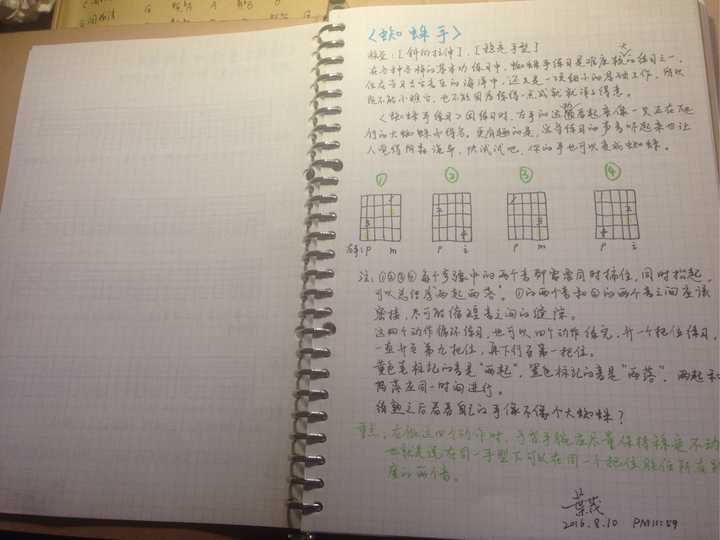 《蜘蛛手》
标签：[斜向拉伸]，[稳定手型]
在各种各样的基本功练习中，蜘蛛手练习是难度较大的练习之一，
但在学习吉他音乐的海洋中，这只是一项细小的基础工作，所以
既不能小瞧它，也不能因为练得一点成就就沾沾得意。
《蜘蛛手练习》因练习时，左手的运指看起来像一只正在爬
行的大蜘蛛而得名。更有趣的是，这首练习的声音听起来也让
人觉得阴森诡异，快试试吧，你的手也可以变成蜘蛛。
① ② ③ ④
1 3
2 4
1 3
2 4
右手：p m p i p m p i
注：①②③④每个步骤中的两个音都需要同时按住，同时抬起，
可以总结为"两起两落"。①的两个音和②的两个音之间应该
密接，尽可能缩短音之间的缝隙。
这四个动作循环练习，也可以四个动作练完，升一个把位练习，
一直升至第九把位，再下行至第一把位。
黄色笔标记的音是"两起"，黑色标记的音是"两落"，两起和
两落应同一时间进行。
练熟之后看看自己的手像不像个大蜘蛛？
重点：在做这四个动作时，手掌手腕应尽量保持稳定不动
也就是说在同一手型下可以在同一个把位能任
度的两个音。
葉茂
2016.8.10 PM11:59